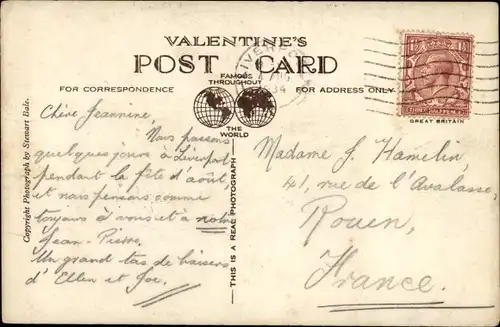 VALENTINE'S
POST CARD
FAMOUS
THROUGHOUT
THE
WORLD
FOR CORRESPONDENCE
FOR ADDRESS ONLY
GREAT BRITAIN
Copyright Photograph by Stewart Bale.
THIS IS A REAL PHOTOGRAPH
Chère Jeannine
Nous passons
quelques jours à Liverpool
pendant la fête d'août
et nous pensons comme
toujours à vous et à notre
Jean-Pierre.
Un grand tas de baisers
d'Ellen et Joe.
Madame J. Hamelin,
41, rue de l'Avalasse,
Rouen,
France.